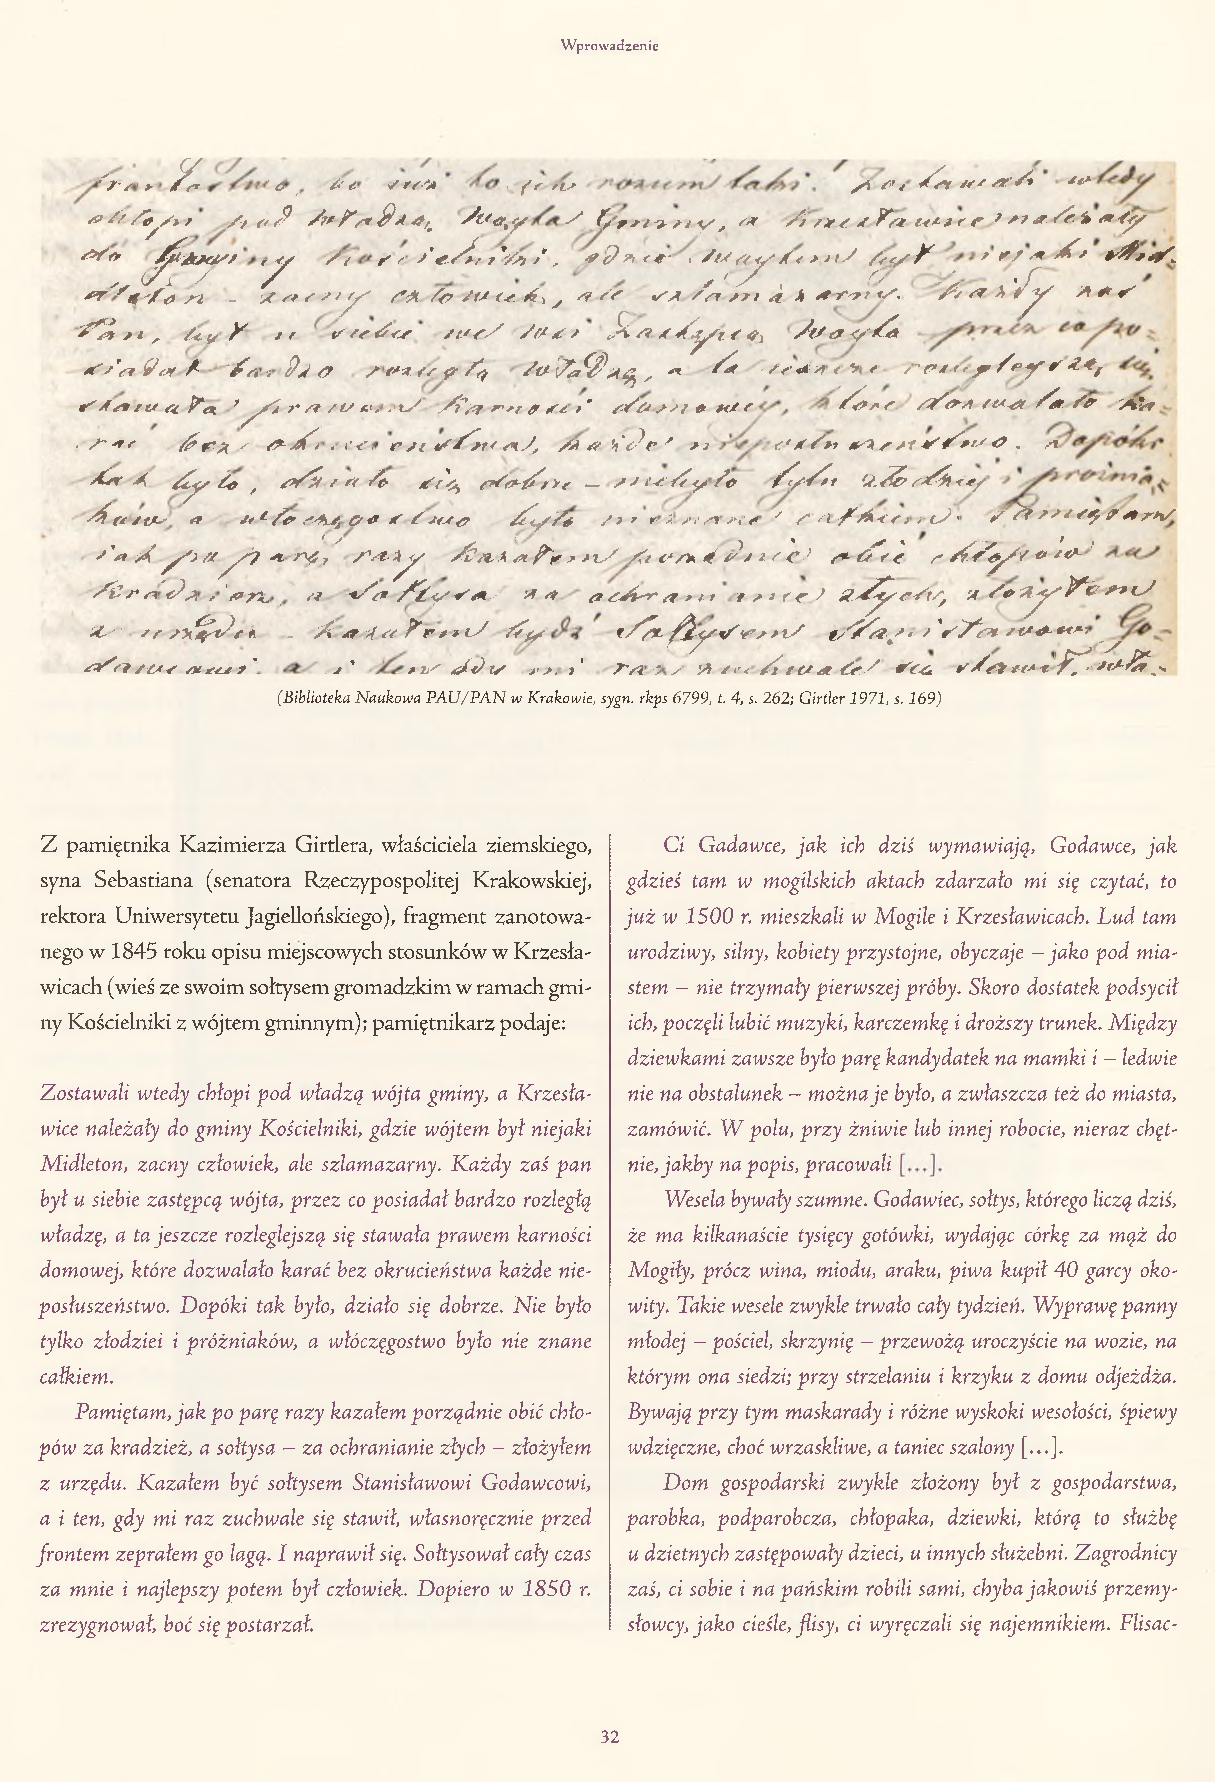 Wprowadzenie
frantostwo, bo już to ich rozum taki! Zostawali wtedy
chłopi pod władzą Woyta Gminy, a Krzesławice należały
do Gminy Kościelniki, gdzie woytem był niejaki Mid-
dleton - zacny człowiek, ale szlamazarny. Każdy zaś
Pan, był u siebie we wsi Zastępcą Woyta przez co po-
siadał bardzo rozległą władzę, a ta jeszcze rozległeyszą się
stawała prawem Karności domowéy, które dozwalało ka-
rać bez okrucieństwa, każde nieposłuszeństwo. Dopóki
tak było, działo się dobrze - niebyło tylu złodziej i próżnia-
ków, a włoczęgostwo było nieznane całkiem. Pamiętam,
iak po parę razy kazałem porządnie obić chłopów za
kradzież, a Sołtysa za ochranianie złych, złożyłem
z urzędu - kazałem bydź Sołtysem Stanisławowi Go-
dawcowi, a i ten gdy mi raz zuchwale się stawił, wła-
(Biblioteka Naukowa PAU/PAN w Krakowie, sygn. rkps 6799, t. 4, s. 262; Girtler 1971, s. 169)
Z pamiętnika Kazimierza Girtlera, właściciela ziemskiego,
syna Sebastiana (senatora Rzeczypospolitej Krakowskiej,
rektora Uniwersytetu Jagiellońskiego), fragment zanotowa-
nego w 1845 roku opisu miejscowych stosunków w Krzesła-
wicach (wieś ze swoim sołtysem gromadzkim w ramach gmi-
ny Kościelniki z wójtem gminnym); pamiętnikarz podaje:
Zostawali wtedy chłopi pod władzą wójta gminy, a Krzesła-
wice należały do gminy Kościelniki, gdzie wójtem był niejaki
Midleton, zacny człowiek, ale szlamazarny. Każdy zaś pan
był u siebie zastępcą wójta, przez co posiadał bardzo rozległą
władzę, a ta jeszcze rozleglejszą się stawała prawem karności
domowej, które dozwalało karać bez okrucieństwa każde nie-
posłuszeństwo. Dopóki tak było, działo się dobrze. Nie było
tylko złodziei i próżniaków, a włóczęgostwo było nie znane
całkiem.
Pamiętam, jak po parę razy kazałem porządnie obić chło-
pów za kradzież, a sołtysa – za ochranianie złych – złożyłem
z urzędu. Kazałem być sołtysem Stanisławowi Godawcowi,
a i ten, gdy mi raz zuchwale się stawił, własnoręcznie przed
frontem zeprałem go lagą. I naprawił się. Sołtysował cały czas
za mnie i najlepszy potem był człowiek. Dopiero w 1850 r.
zrezygnował, boć się postarzał.
Ci Gadawce, jak ich dziś wymawiają, Godawce, jak
gdzieś tam w mogilskich aktach zdarzało mi się czytać, to
już w 1500 r. mieszkali w Mogile i Krzesławicach. Lud tam
urodziwy, silny, kobiety przystojne, obyczaje – jako pod mia-
stem – nie trzymały pierwszej próby. Skoro dostatek podsycił
ich, poczęli lubić muzyki, karczemkę i droższy trunek. Między
dziewkami zawsze było parę kandydatek na mamki i – ledwie
nie na obstalunek – można je było, a zwłaszcza też do miasta,
zamówić. W polu, przy żniwie lub innej robocie, nieraz chęt-
nie, jakby na popis, pracowali [...].
Wesela bywały szumne. Godawiec, sołtys, którego liczą dziś,
że ma kilkanaście tysięcy gotówki, wydając córkę za mąż do
Mogiły, prócz wina, miodu, araku, piwa kupił 40 garcy oko-
wity. Takie wesele zwykle trwało cały tydzień. Wyprawę panny
młodej – pościel, skrzynię – przewożą uroczyście na wozie, na
którym ona siedzi; przy strzelaniu i krzyku z domu odjeżdża.
Bywają przy tym maskarady i różne wyskoki wesołości, śpiewy
wdzięczne, choć wrzaskliwe, a taniec szalony [...].
Dom gospodarski zwykle złożony był z gospodarstwa,
parobka, podparobcza, chłopaka, dziewki, którą to służbę
u dzietnych zastępowały dzieci, u innych służebni. Zagrodnicy
zaś, ci sobie i na pańskim robili sami, chyba jakowiś przemy-
słowcy, jako cieśle, flisy, ci wyręczali się najemnikiem. Flisac-
32